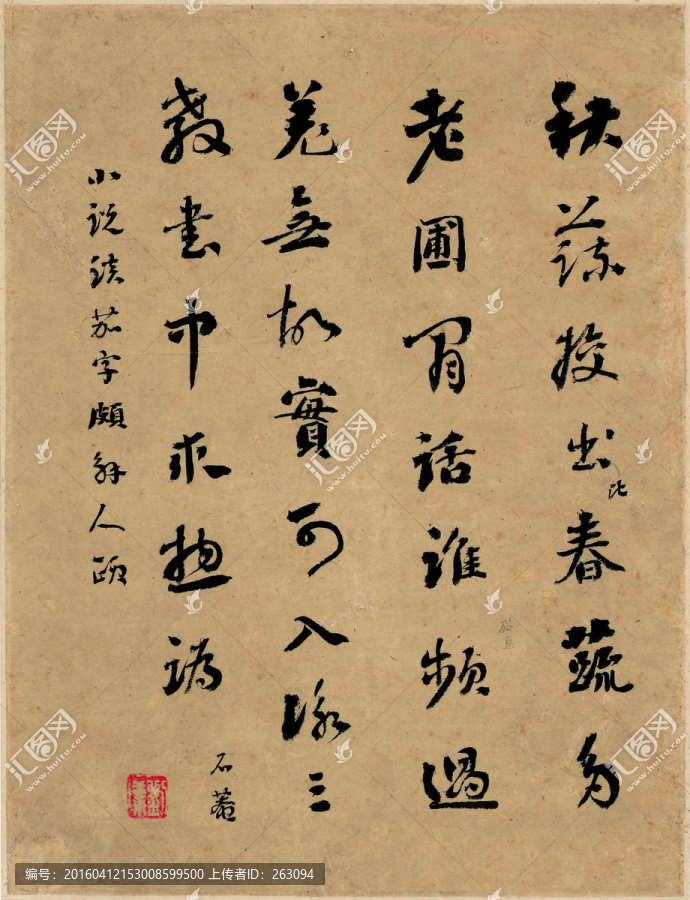 秋蔬挍出比春蔬多
老圃閒話誰頻過
羌無故實可入詠三
教書中求惣譌
石菴
小說茄字頗解人頤
汇图网
www.huitu.com
编号：20160412153008599500 上传者ID：263094